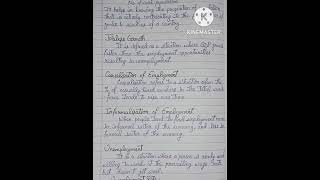 It helps in knowing the proportion of population
that is actively contributing to the
goods & services of a country.
KINEMASTER
Jobless Growth
It is defined as a situation where GDP grows
faster than the employment opportunities
resulting in unemployment.
Casualisation of Employment
Casualisation refers to a situation when the
% of casually hired workers in the total work
force tends to rise over time.
Informalisation of Employment
When people tend to find employment more
in informal sector of the economy, and less in
formal sector of the economy.
Unemployment
It is a situation where a person is ready and
willing to work at the prevailing wage rate
but doesn't get work.